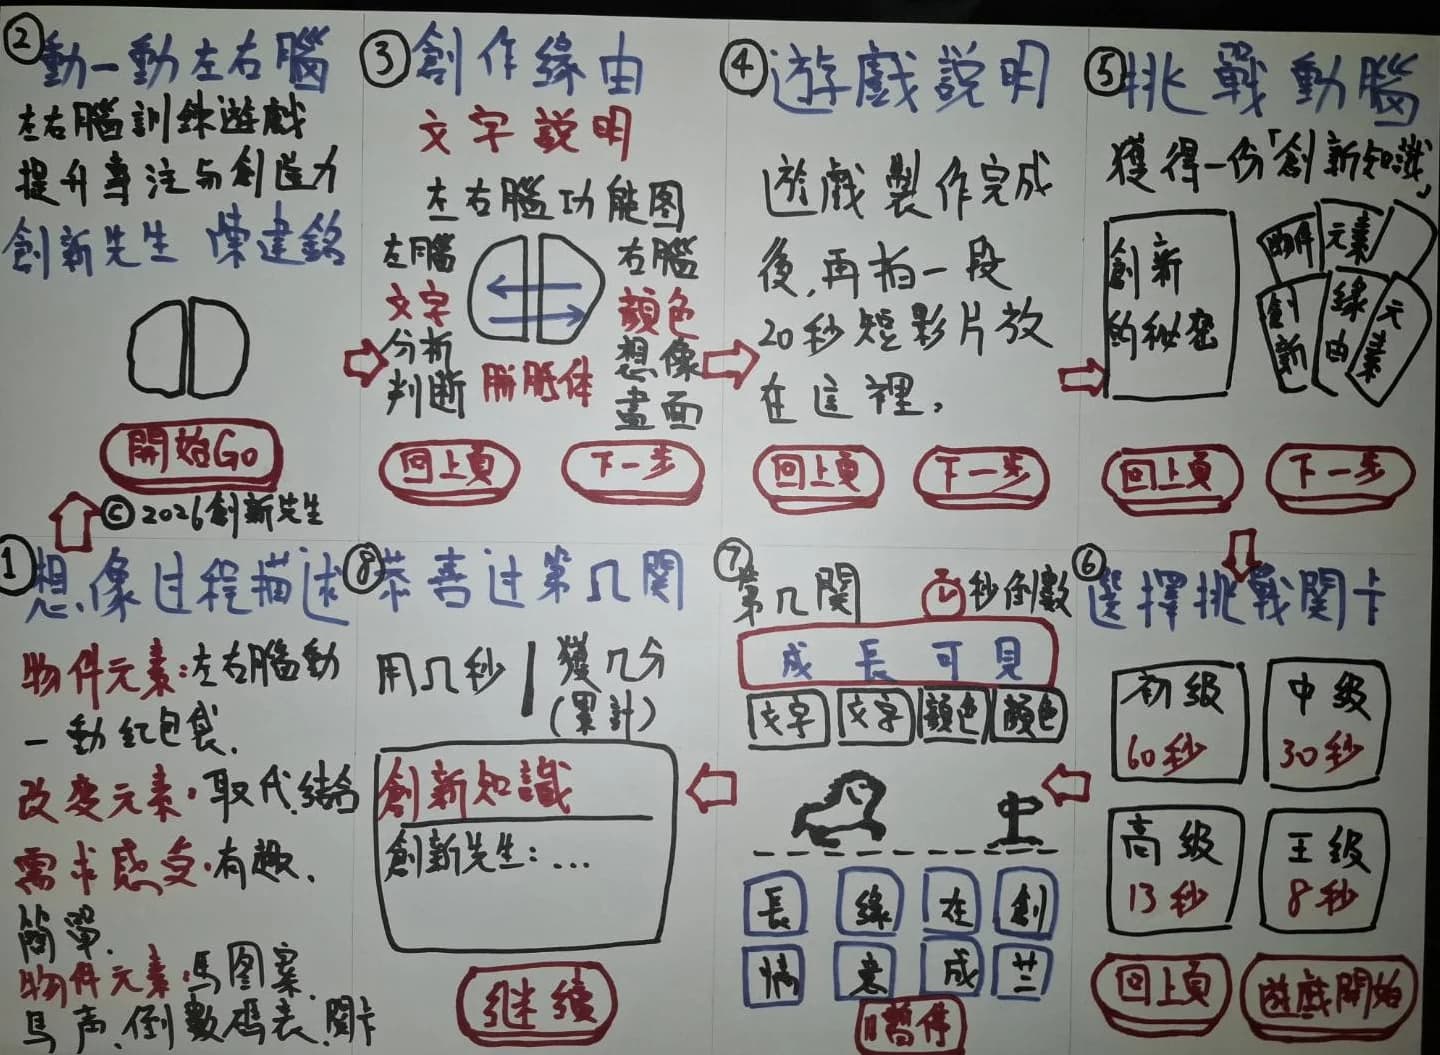 ②
動一動左右腦
左右腦訓鍊遊戲
提升專注与創造力
創新先生 陳建銘
開始Go
© 2026創新先生
③
創作緣由
文字説明
左右腦功能图
左腦
文字
分析
判斷
胼胝体
右腦
顏色
想像
畫面
回上頁
下一步
④
遊戲説明
遊戲製作完成
後,再拍一段
20秒短影片放
在這裡,
回上頁
下一步
⑤
挑戰動腦
獲得一份「創新知識」
創新
的秘密
物件
元素
創新
緣由
元素
回上頁
下一步
①
想像过程描述
物件元素:左右腦動
一動紅包袋.
改变元素.取代.結合
需求感受.有趣.
簡單.
物件元素.馬图案.
馬声.倒數碼表.関卡
⑧
恭喜过第几関
用几秒
獲几分
(累計)
創新知識
創新先生:...
继續
⑦
第几関
秒倒數
成長可見
文字
文字
顏色
顏色
長
緣
在
創
情
意
成
暫停
⑥
選擇挑戰関卡
初級
60秒
中級
30秒
高級
13秒
王級
8秒
回上頁
遊戲開始